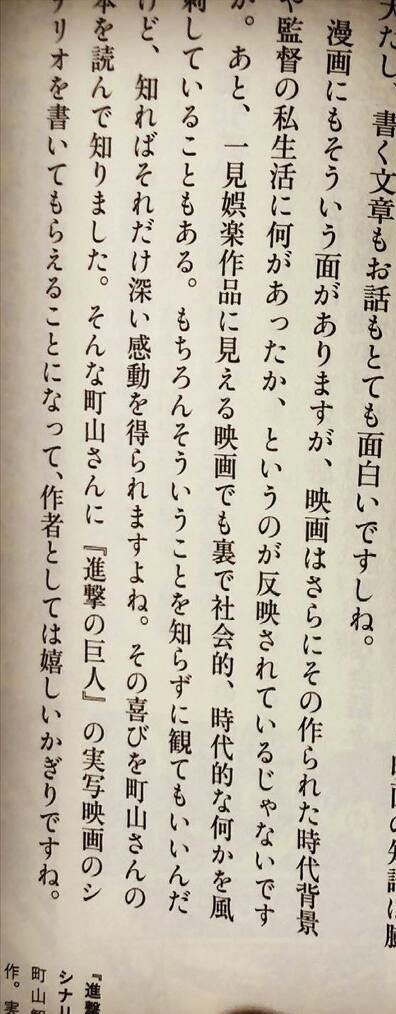 書く文章もお話もとても面白いですしね。
漫画にもそういう面がありますが、映画はさらにその作られた時代背景
や監督の私生活に何があったか、というのが反映されているじゃないです
か。あと、一見娯楽作品に見える映画でも裏で社会的、時代的な何かを風
刺していることもある。もちろんそういうことを知らずに観てもいいんだ
けど、知ればそれだけ深い感動を得られますよね。その喜びを町山さんの
本を読んで知りました。そんな町山さんに『進撃の巨人』の実写映画のシ
ナリオを書いてもらえることになって、作者としては嬉しいかぎりですね。
『進撃
シナリ
町山智
作。実